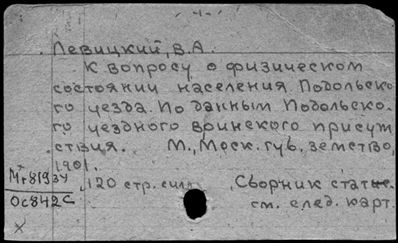 Левицкий, В.А.
К вопросу о физическом
состоянии населения Подольско
го уезда. По данным Подольско-
го уездного воинского присут
ствия. М., Моск. губ. земство,
1901.
Mr81934 120 стр. Сборник стат.
Oc842C см. след. карт.